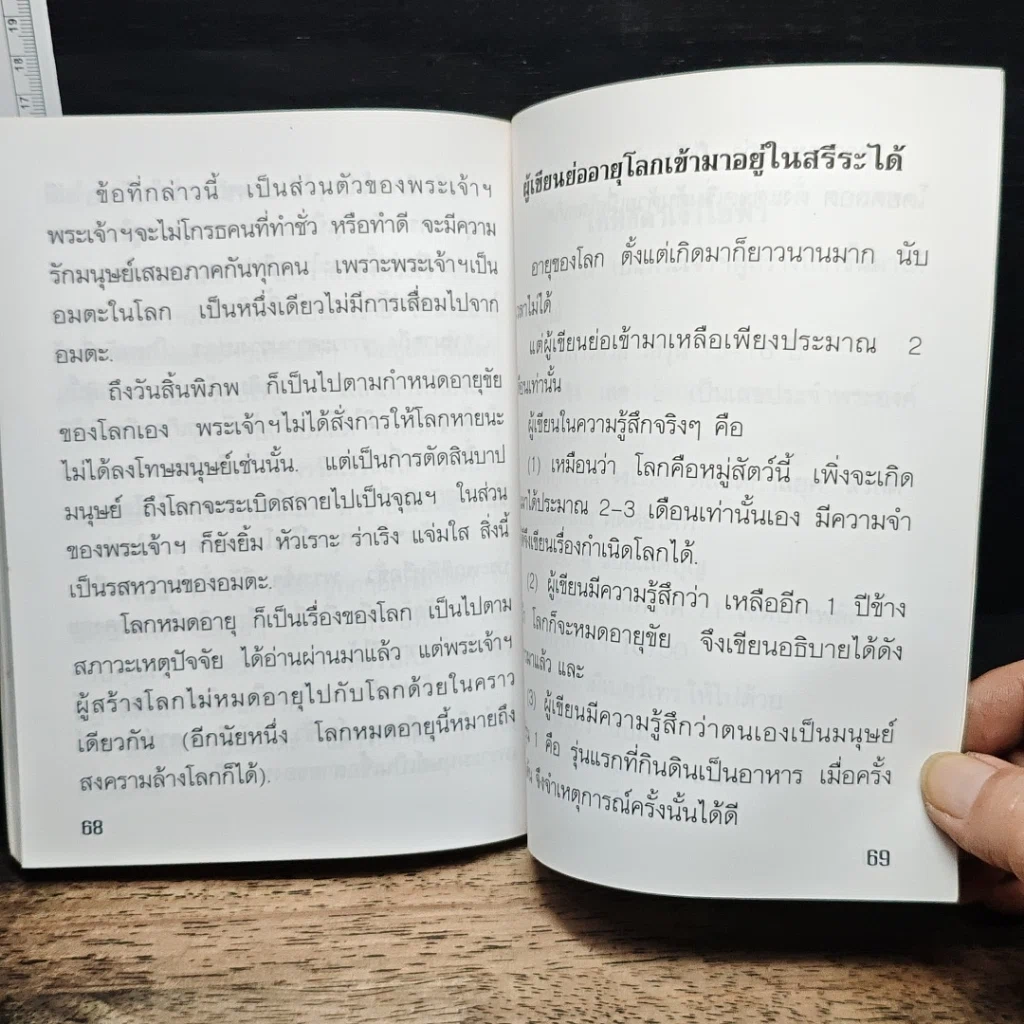 ข้อที่กล่าวนี้ เป็นส่วนตัวของพระเจ้าฯ
พระเจ้าฯจะไม่โกรธคนที่ทำชั่ว หรือทำดี จะมีความ
รักมนุษย์เสมอภาคกันทุกคน เพราะพระเจ้าฯเป็น
อมตะในโลก เป็นหนึ่งเดียวไม่มีการเสื่อมไปจาก
อมตะ.
ถึงวันสิ้นพิภพ ก็เป็นไปตามกำหนดอายุขัย
ของโลกเอง พระเจ้าฯไม่ได้สั่งการให้โลกหายนะ
ไม่ได้ลงโทษมนุษย์เช่นนั้น. แต่เป็นการตัดสินบาป
มนุษย์ ถึงโลกจะระเบิดสลายไปเป็นจุณฯ ในส่วน
ของพระเจ้าฯ ก็ยังยิ้ม หัวเราะ ร่าเริง แจ่มใส สิ่งนี้
เป็นรสหวานของอมตะ.
โลกหมดอายุ ก็เป็นเรื่องของโลก เป็นไปตาม
สภาวะเหตุปัจจัย ได้อ่านผ่านมาแล้ว แต่พระเจ้าฯ
ผู้สร้างโลกไม่หมดอายุไปกับโลกด้วยในคราว
เดียวกัน (อีกนัยหนึ่ง โลกหมดอายุนี้หมายถึง
สงครามล้างโลกก็ได้).
68
ผู้เขียนย่ออายุโลกเข้ามาอยู่ในสรีระได้
อายุของโลก ตั้งแต่เกิดมาก็ยาวนานมาก นับ
ไม่ได้
แต่ผู้เขียนย่อเข้ามาเหลือเพียงประมาณ 2
เท่านั้น
ผู้เขียนในความรู้สึกจริงๆ คือ
(1) เหมือนว่า โลกคือหมู่สัตว์นี้ เพิ่งจะเกิด
มาได้ประมาณ 2-3 เดือนเท่านั้นเอง มีความจำ
จึงเขียนเรื่องกำเนิดโลกได้.
(2) ผู้เขียนมีความรู้สึกว่า เหลืออีก 1 ปีข้าง
โลกก็จะหมดอายุขัย จึงเขียนอธิบายได้ดัง
มาแล้ว และ
(3) ผู้เขียนมีความรู้สึกว่าตนเองเป็นมนุษย์
1 คือ รุ่นแรกที่กินดินเป็นอาหาร เมื่อครั้ง
จึงจำเหตุการณ์ครั้งนั้นได้ดี
69